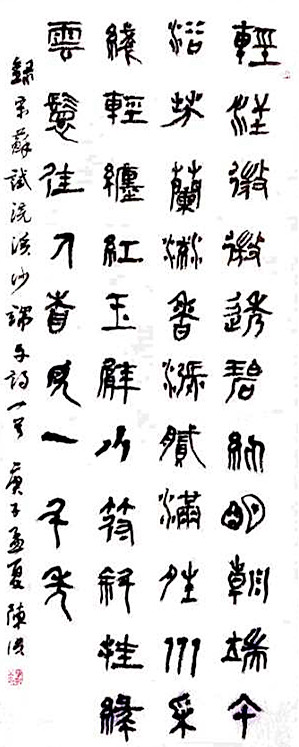 輕汗微微透碧紈明朝端午
浴芳蘭流香漲膩滿晴川采
綫輕纏紅玉臂小符斜挂綠
雲鬟佳人相見一千年
錄宋蘇軾浣溪沙端午詩一首 庚子孟夏 陳